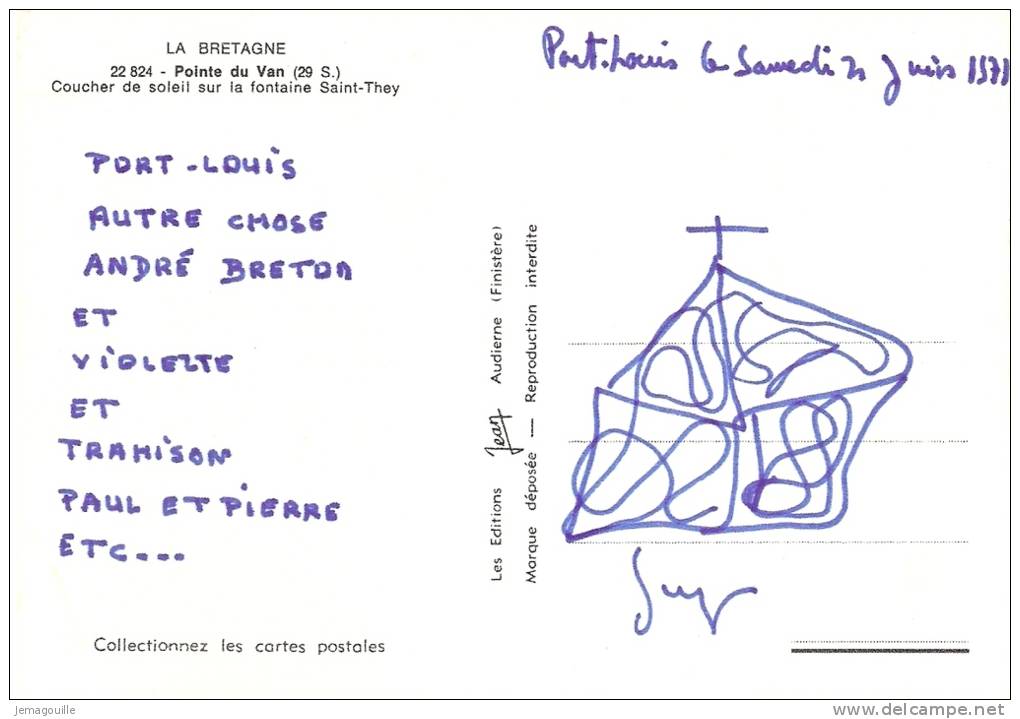 LA BRETAGNE
22 824 - Pointe du Van (29 S.)
Coucher de soleil sur la fontaine Saint-They
PORT-LOUIS
AUTRE CHOSE
ANDRÉ BRETON
ET
VIOLEZTE
ET
TRAHISON
PAUL ET PIERRE
ETC...
Collectionnez les cartes postales
Les Editions Jean Audierne (Finistère)
Marque déposée — Reproduction interdite
Port-Louis le Samedi Juin 1971
Guy
Jemagouille
www.delcampe.net